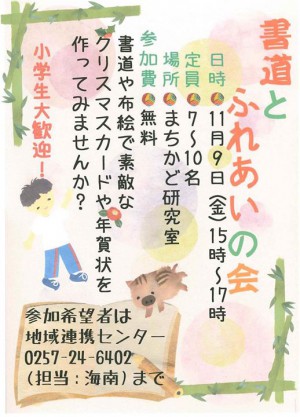 書道と
ふれあいの会
日時 11月9日(金)15時〜17時
定員 7〜10名
場所 まちかど研究室
参加費 無料
書道や布絵で素敵な
クリスマスカードや年賀状を
作ってみませんか?
小学生大歓迎!
参加希望者は
地域連携センター
0257-24-6402
(担当:海南)まで